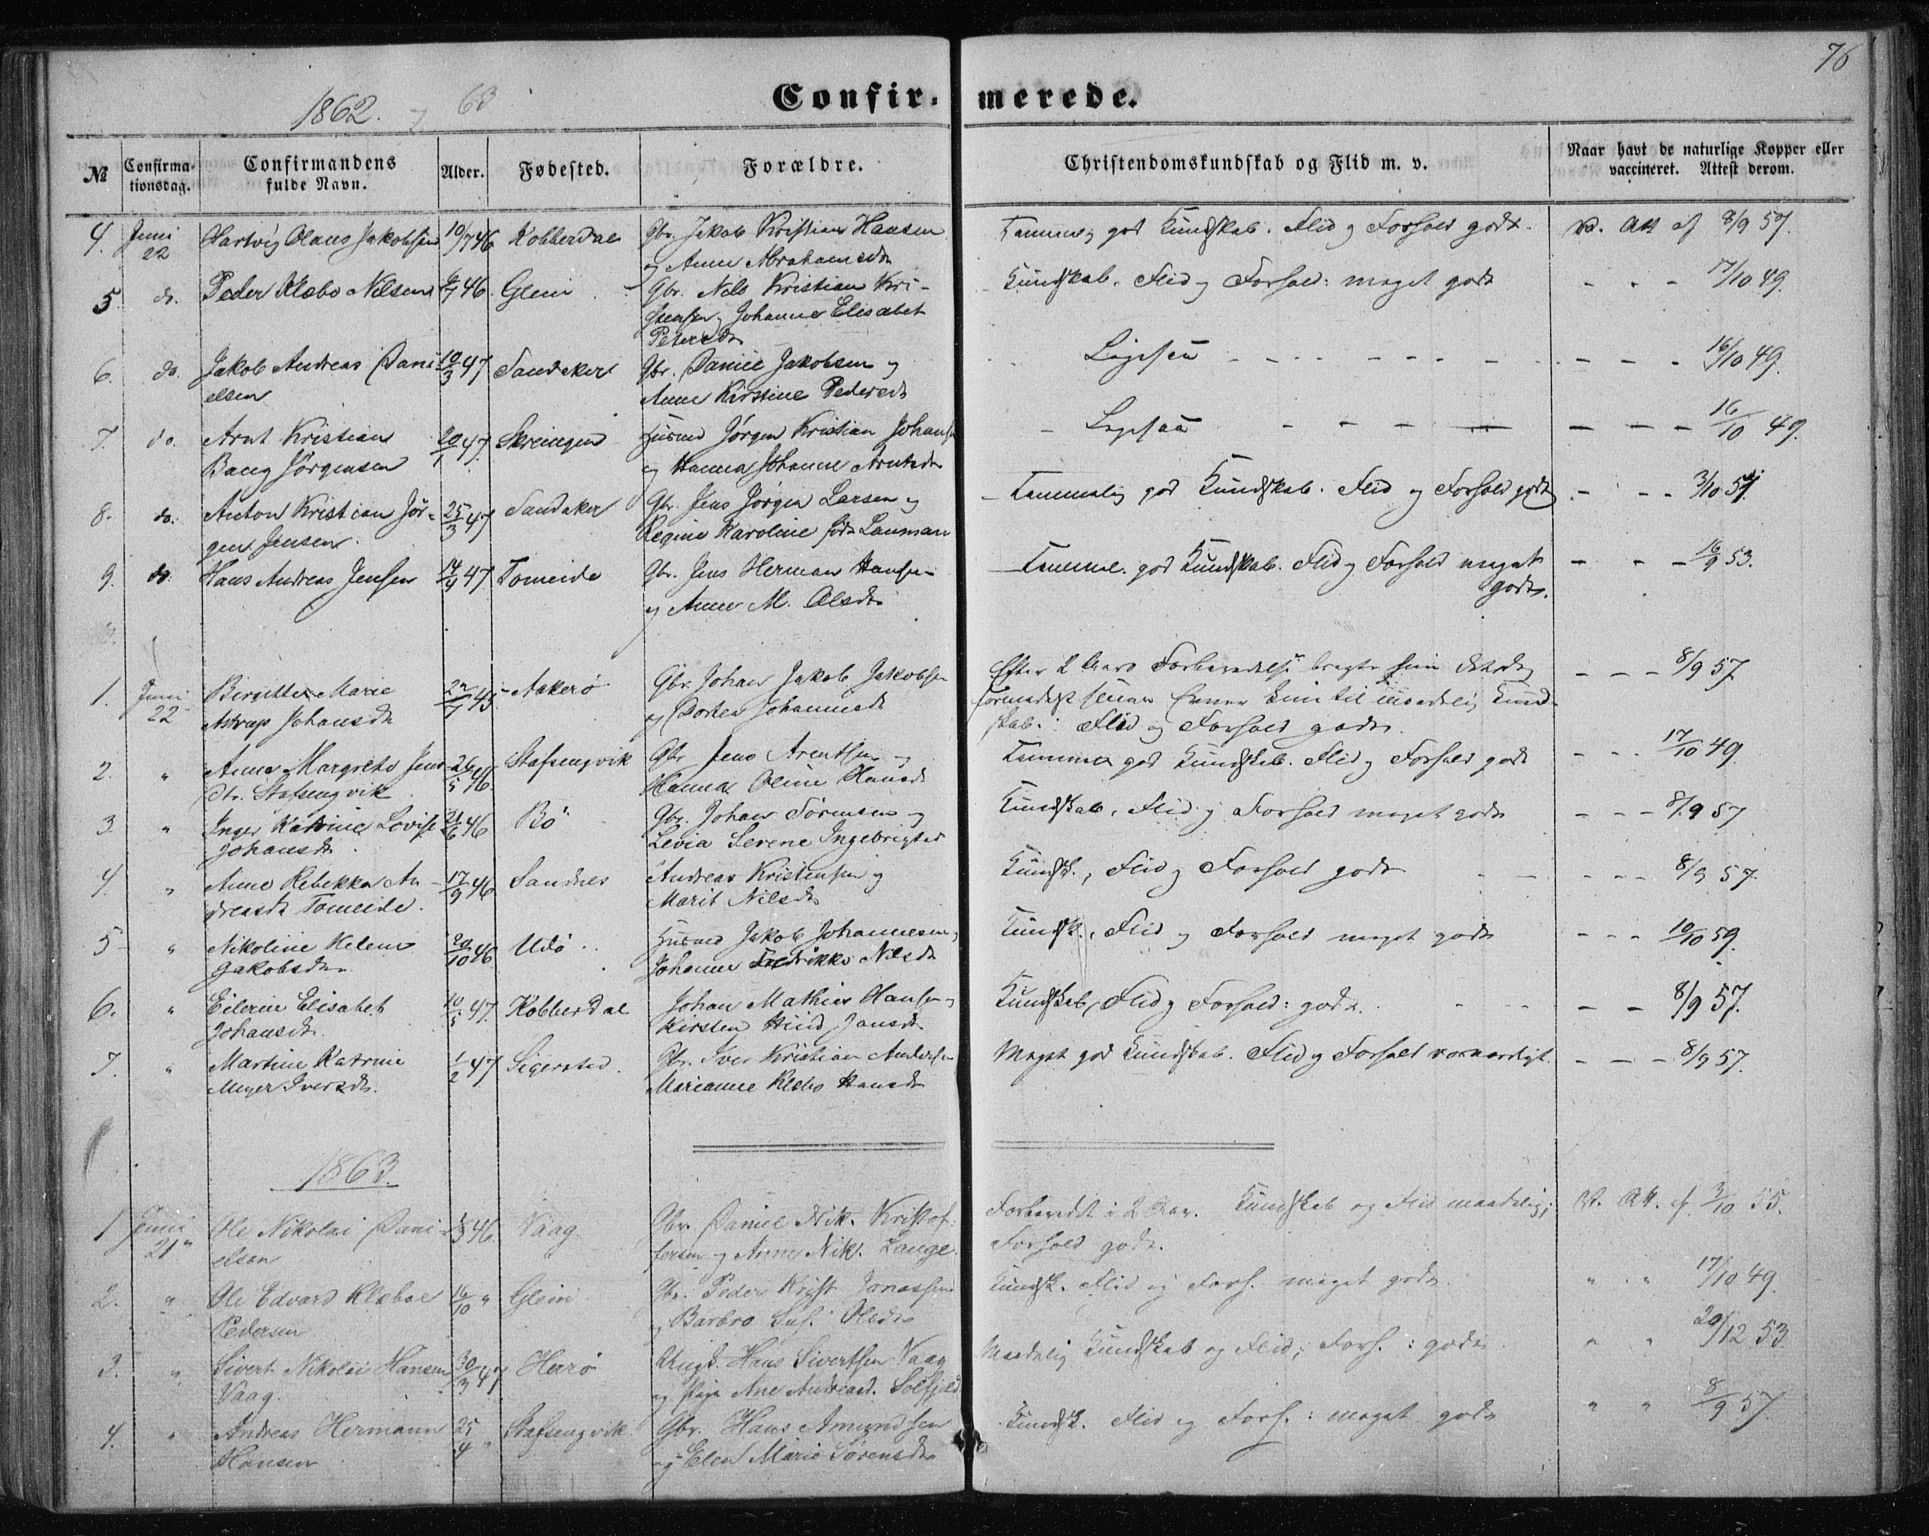 76
1862. og 63
Confirmerede.
№ Confirmationsdag. Confirmandens fulde Navn. Alder. Fødested. Forældre. Christendomskundskab og Flid m. v. Naar havt de naturlige Kopper eller vaccineret. Attest derom.
4. Juni 22 Hartvig Olaus Jakobsen 19/7 46 Kobberdal Gbr. Jakob Kristian Hansen Temmelig god Kundskab. Flid og Forhold godt. v. Att af 8/9 57.
og Anne Abrahamsdtr
5 do. Peder Klæbo Nilsen 6/7 46. Glein Gbr. Nils Kristian Kri- Kundskab, Flid og Forhold: meget godt - - - 17/10 49.
stensen og Johanne Elisabet
Petersdtr
6. do. Jakob Andreas Dani- 10/3 47 Sandaker Gbr. Daniel Jakobsen og Ligesaa - - - - - - 16/10 49.
elsen Anne Kirstine Pedersdtr
7. do. Arnt Kristian 20/1 47. Skeingen Husmd Jørgen Kristian Johansen - Ligesaa - - - - - - - 16/10 49.
Bang Jørgensen og Hanna Johanne Arntsdtr
8. do. Anton Kristian Jør- 25/3 47 Sandaker Gbr. Jens Jørgen Larsen og Temmelig god Kundskab. Flid og Forhold godt - - - 3/10 51.
gen Jensen. Regine Karoline født Lauman
9. do. Hans Andreas Jensen 14/4 47 Tomeide Gbr. Jens Herman Hansen Temmel. god Kundskab. Flid og Forhold meget - - - 16/9 53.
og Anne M. Olsdtr godt.
1. Juni 22 Birgitte Marie 45 Aakerø Gbr. Johan Jakob Jakobsen Efter 2 Aars Forberedelse bragte hun det dog - - - 8/9 57
Astrup Johansdtr og Dorthea Johannesdtr formedelst Evner kun til maadelig Kund-
skab. Flid og Forhold godt.
2. " Anne Margrethe Jens- 26/5 46 Stafsengvik Gbr Jens Arentsen og Temmel god Kundskab. Flid og Forhold godt - - - 17/10 49.
dtr. Stafsengvik Hanna Oline Hansdtr
3. " Inger Katrine Lovise 21/6 46 Bø Gbr. Johan Sørensen og Kundskab, Flid og Forhold meget godt - - - 8/9 57
Johansdtr. Levia Serene Ingebrigtsd
4. " Anne Rebekka An- 17/9 46 Sandnes Andreas Kristensen og Kundsk., Flid og Forhold godt - - - 8/9 57.
dreasdtr Tomeide. Marit Nilsdtr
5 " Nikoline Helene 20/10 46 Udø Husmd Jakob Johannesen og Kundsk., Flid og Forhold meget godt - - - 10/10 59.
Jakobsdtr. Johanne Fredrikke Nilsdtr
6. " Eilerine Elisabet 10/5 47. Kobberdal Johan Mathias Hansen og Kundskab, Flid og Forhold: godt. - - - 8/9 57.
Johansdtr. Kirsten Hind Jansdtr
7. " Martine Katrine 1/2 47 Sigersted. Gbr. Iver Kristian Andersen Meget god Kundskab. Flid og Forhold værdigt. - - - 8/9 57.
Meyer Iversdtr. Marianne Klæbo Hansdtr
1863.
1 Juni 21 Ole Nikolai Dani- 46. Vaag. Gbr. Daniel Nik. Kristof- Forberedt i 2 Aar. Kundskab og Flid maadelig; v. Att. af. 3/10 55.
elsen fersen og Anne Nik. Lange. Forhold godt.
2. " Ole Edvard Klæboe 16/10 " Glein Gbr. Peder Krist Jonassen Kundsk. Flid og Forh. meget godt. " " 17/10 49.
Pedersen og Barbro Sus. Olsdtr
3. " Sivert Nikolai Hansen 30/3 47 Herø Ungk. Hans Sivertsen Vaag Maadelig Kundskab og Flid; Forh.: godt. " " 20/12 53.
Vaag. og Pige Ane Andreasd. Solfjeld
4. " Andreas Hermann 25/4 " Stafsengvik Gbr. Hans Amundsen Kundsk. Flid og Forh.: meget godt " " 8/9 57.
Hansen og Elen Marie Sørensdtr